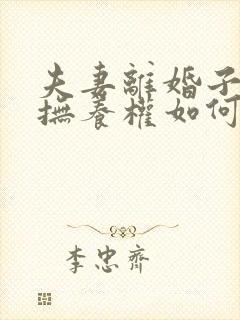 夫妻離婚子
撫養權如何
李忠齊